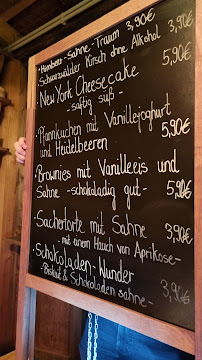 • Himbeer-Sahne-Traum 3,90€
• Schwarzwälder Kirsch ohne Alkohol 3,90€
• New York Cheesecake 5,90€
- saftig süß -
• Pfannkuchen mit Vanillejoghurt
und Heidelbeeren 5,90€
• Brownies mit Vanilleeis und
Sahne - schokoladig gut - 5,90€
• Sachertorte mit Sahne 3,90€
- mit einem Hauch von Aprikose -
• Schokoladen-Wunder
- Biskuit & Schokoladensahne - 3,90€